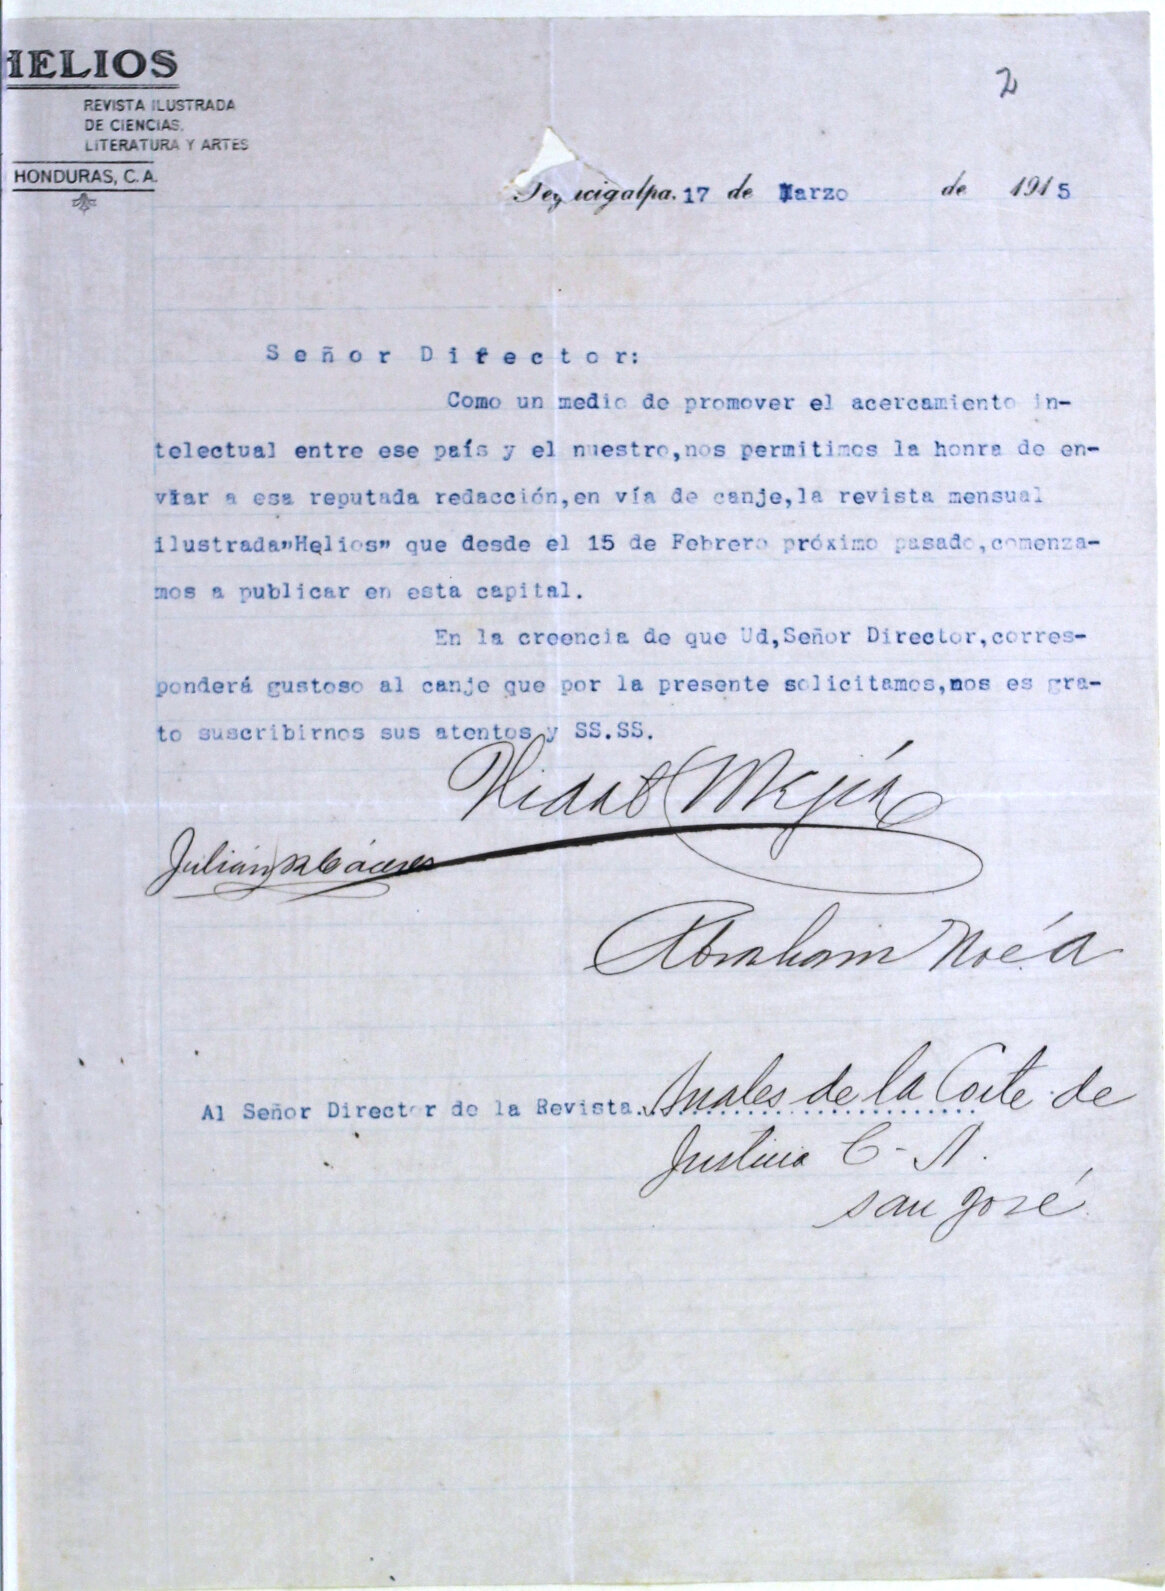 HELIOS
REVISTA ILUSTRADA
DE CIENCIAS,
LITERATURA Y ARTES
HONDURAS, C. A.
2
Tegucigalpa. 17 de Marzo de 1915
Señor Director:
Como un medio de promover el acercamiento in-
telectual entre ese país y el nuestro,nos permitimos la honra de en-
viar a esa reputada redacción,en vía de canje,la revista mensual
ilustrada"Helios" que desde el 15 de Febrero próximo pasado,comenza-
mos a publicar en esta capital.
En la creencia de que Ud,Señor Director,corres-
ponderá gustoso al canje que por la presente solicitamos,nos es gra-
to suscribirnos sus atentos y SS.SS.
Vidal Mejía
Julián R Cáceres
Abraham
Al Señor Director de la Revista. Anales de la Corte de
Justicia C-A.
San José